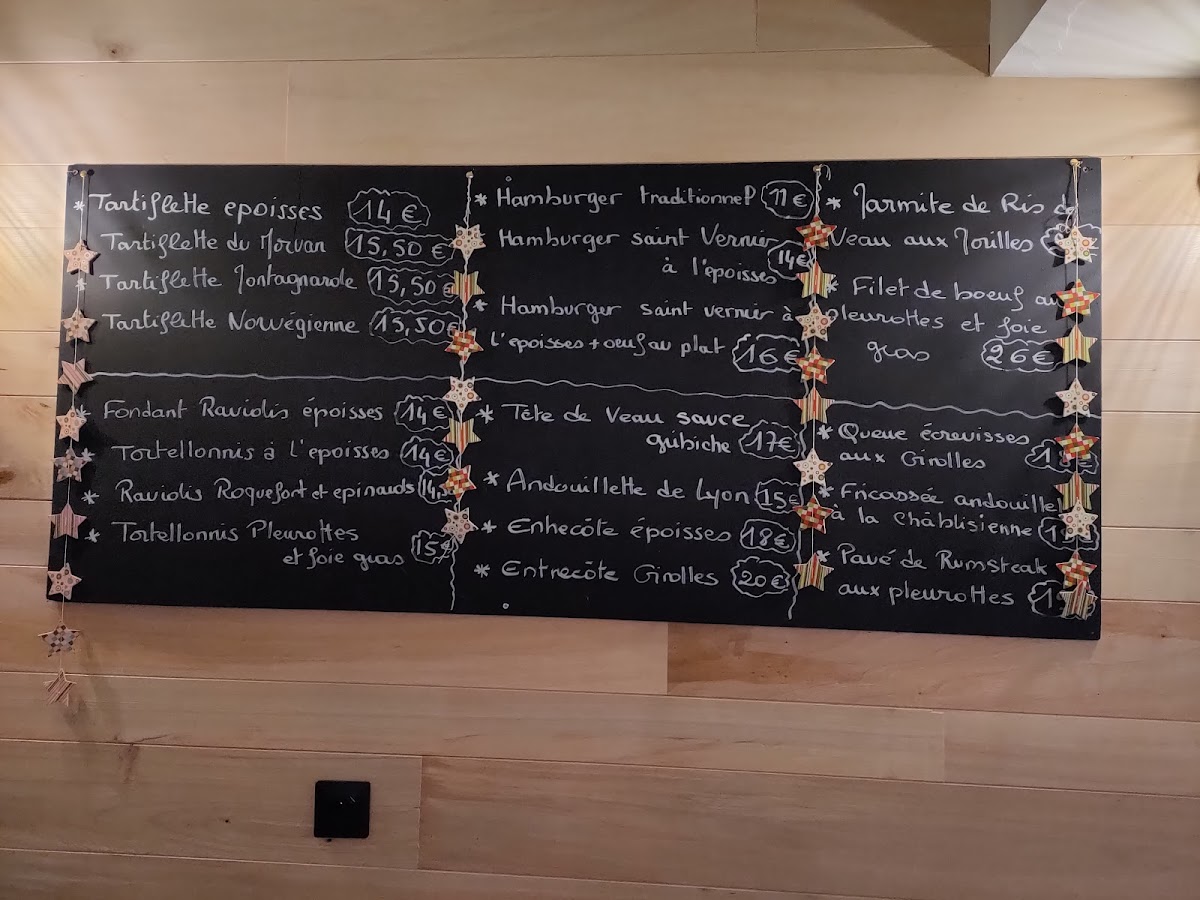 * Tartiflette epoisses 14€
Tartiflette du Morvan 15,50€
* Tartiflette Montagnarde 15,50€
Tartiflette Norwégienne 15,50€
Fondant Raviolis époisses 14€
* Tortellonnis à l'epoisses 14€
* Raviolis Roquefort et epinards
* Tortellonnis Pleurottes
et foie gras 15€
* Hamburger traditionnel 11€
* Hamburger saint Vernier
à l'époisses 14€
* Hamburger saint vernier à
l'époisses + oeuf au plat 16€
* Tête de Veau sauce
gribiche 17€
* Andouillette de Lyon 15€
* Entrecôte époisses 18€
* Entrecôte Girolles 20€
* Marmite de Ris de
Veau aux Morilles
* Filet de boeuf au
pleurottes et foie
gras 26€
* Queue écrevisses
aux Girolles
* Fricassée andouille
à la Châblisienne
* Pavé de Rumsteak
aux pleurottes